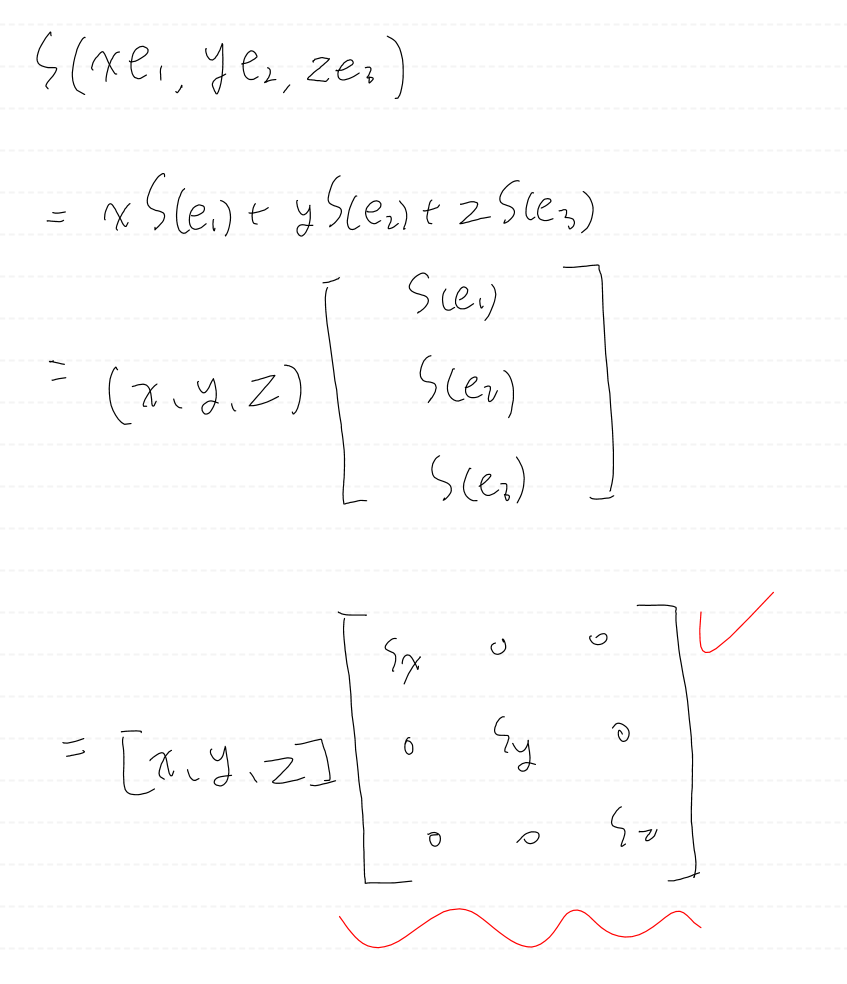 S(xe₁, ye₂, ze₃)
= xS(e₁) + yS(e₂) + zS(e₃)
= (x, y, z) [ S(e₁)
S(e₂)
S(e₃) ]
= [x, y, z] [ Sx 0 0
0 Sy 0
0 0 Sz ]